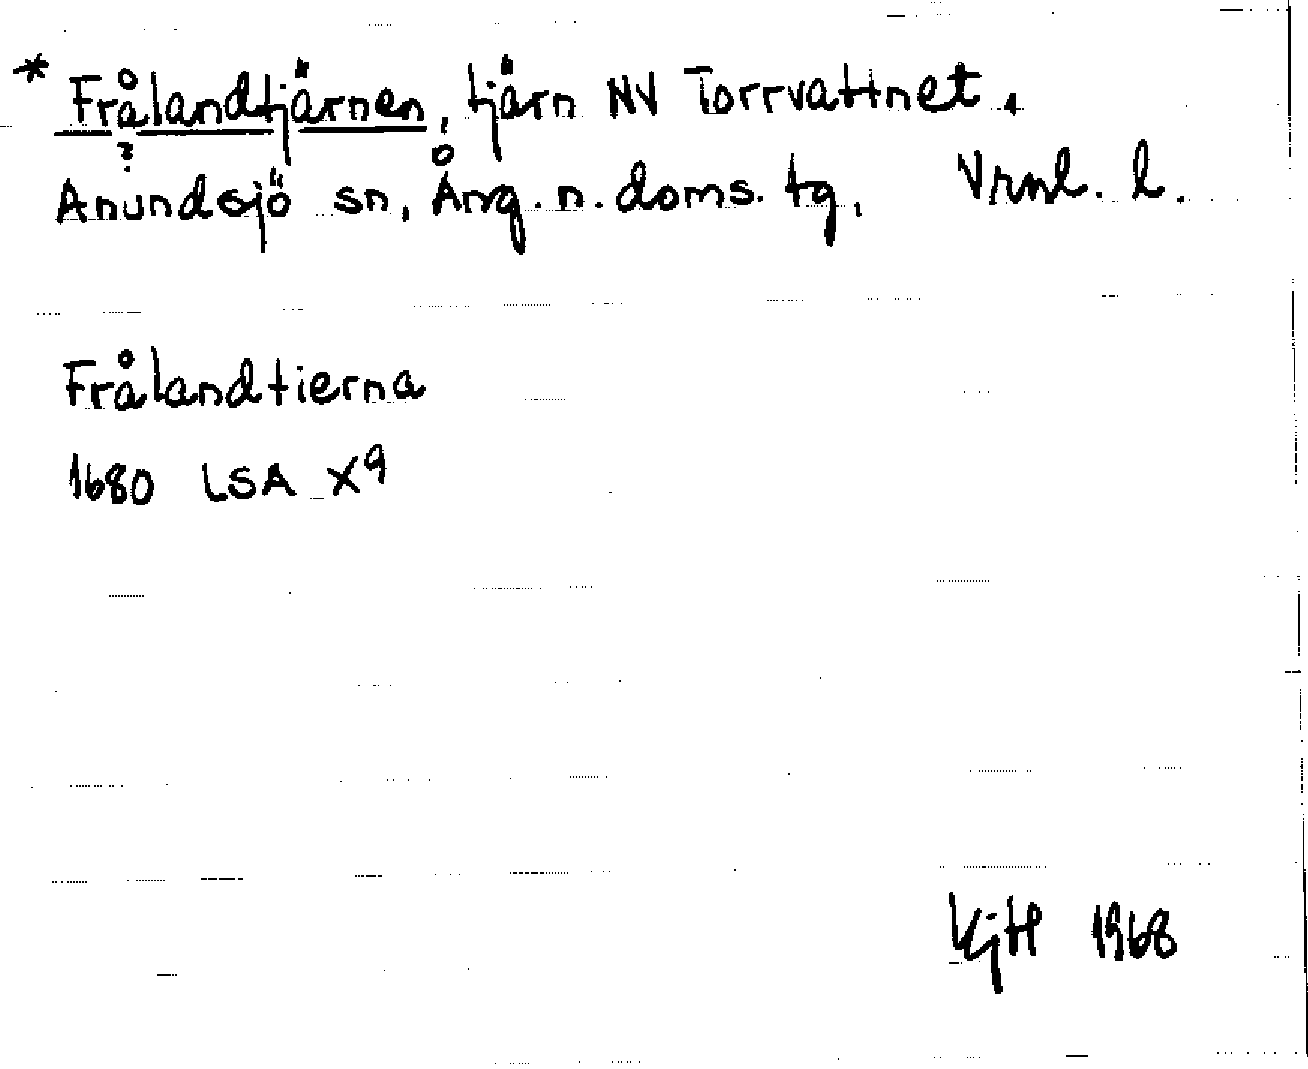 * Frålandtjärnen, tjärn NV Torrvattnet,
?
Anundsjö sn, Ång. n. doms. tg, Vrnl. l.
Frålandtierna
1680 LSA X9
KjH 1968